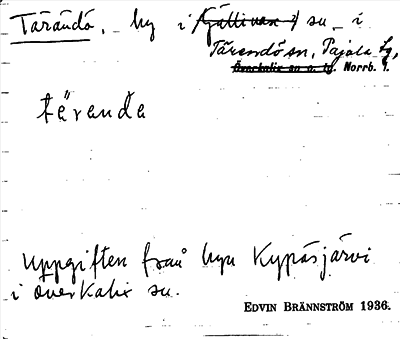 Tärändö, by i Gällivare sn i
Tärendö sn, Pajala tg,
Överkalix sn o. tg. Norrb. l.
tärenda
Uppgiften från byn Kypåsjärvi
i överkalix sn.
EDVIN BRÄNNSTRÖM 1936.